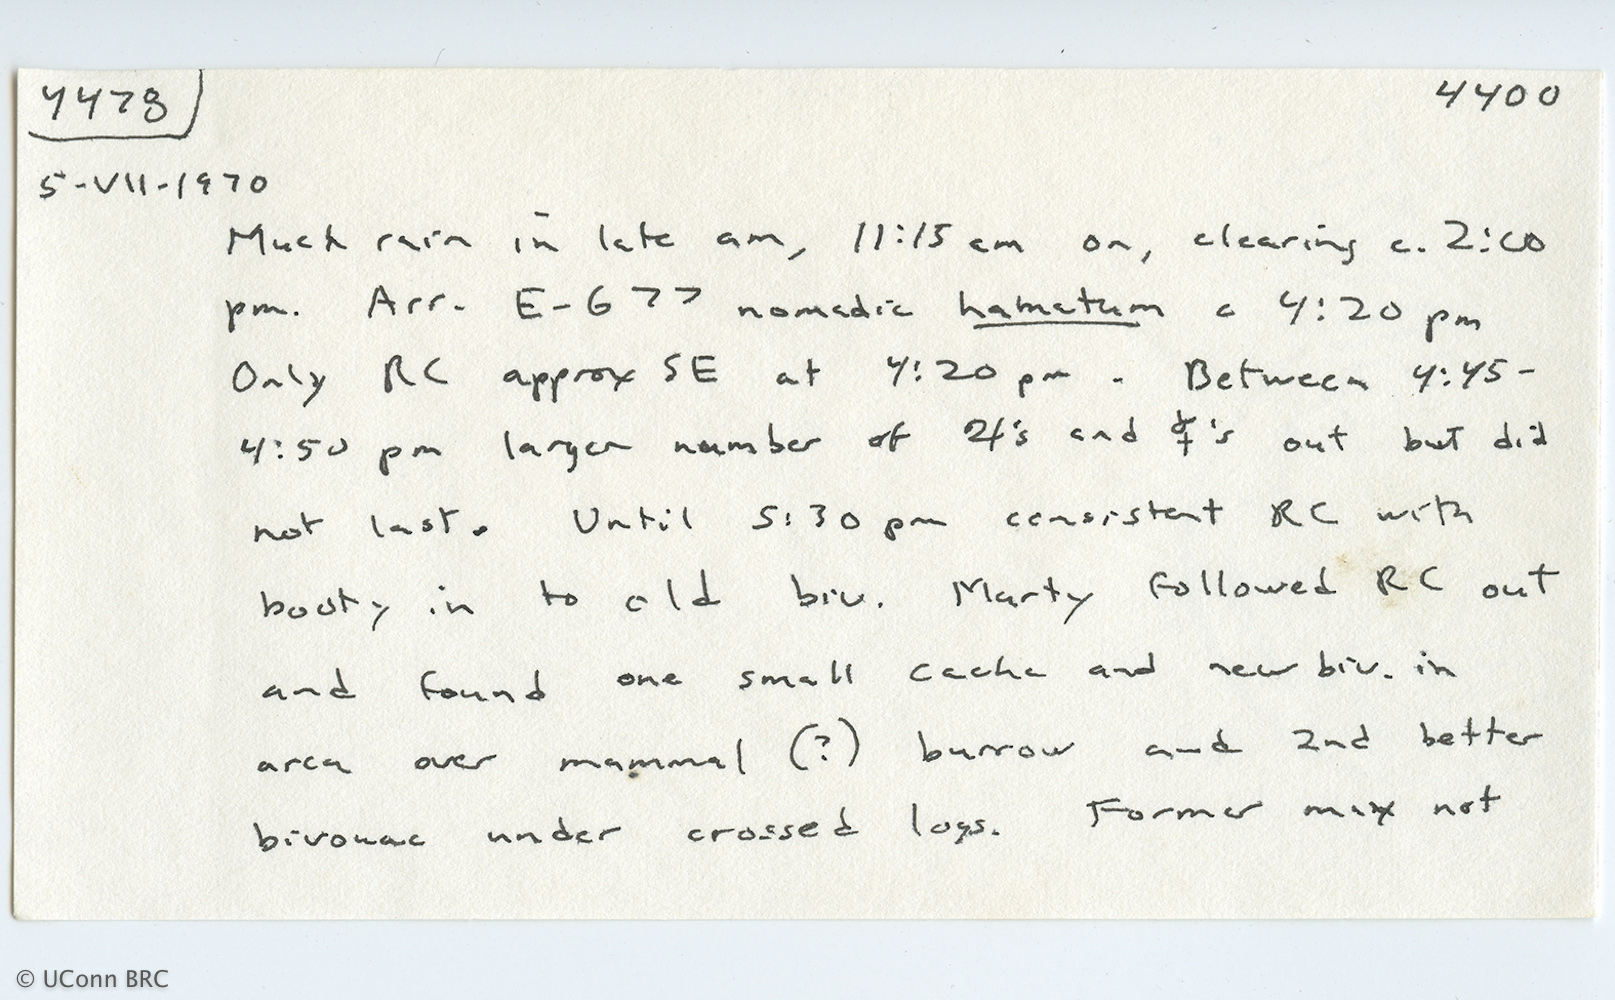 4478
4400
5-VII-1970
Much rain in late am, 11:15 am on, clearing c. 2:00
pm. Arr. E-677 nomadic hamatum c 4:20 pm
Only RC approx SE at 4:20 pm. Between 4:45-
4:50 pm larger number of 2♃'s and ☿'s out but did
not last. Until 5:30 pm consistent RC with
booty in to old biv. Marty followed RC out
and found one small cache and new biv. in
area over mammal (?) burrow and 2nd better
bivouac under crossed logs. Former may not
© UConn BRC